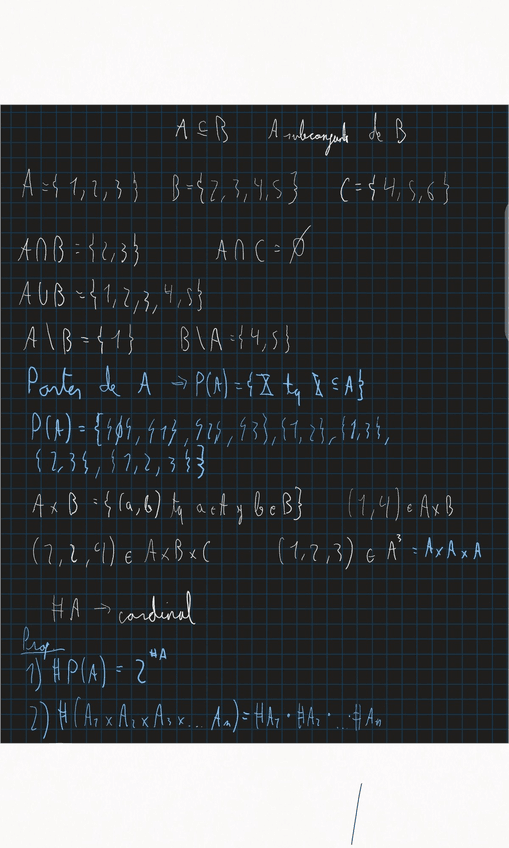 A ⊆ B A subconjunto de B
A = {1, 2, 3} B = {2, 3, 4, 5} C = {4, 5, 6}
A ∩ B = {2, 3} A ∩ C = ∅
A ∪ B = {1, 2, 3, 4, 5}
A \ B = {1} B \ A = {4, 5}
Partes de A → P(A) = {X tq X ⊆ A}
P(A) = {{∅}, {1}, {2}, {3}, {1, 2}, {1, 3},
{2, 3}, {1, 2, 3}}
A × B = {(a, b) tq a ∈ A y b ∈ B} (1, 4) ∈ A × B
(2, 2, 4) ∈ A × B × C (1, 2, 3) ∈ A³ = A × A × A
#A → cardinal
Prop
1) #P(A) = 2^#A
2) #(A₁ × A₂ × A₃ × ... Aₙ) = #A₁ · #A₂ · ... #Aₙ